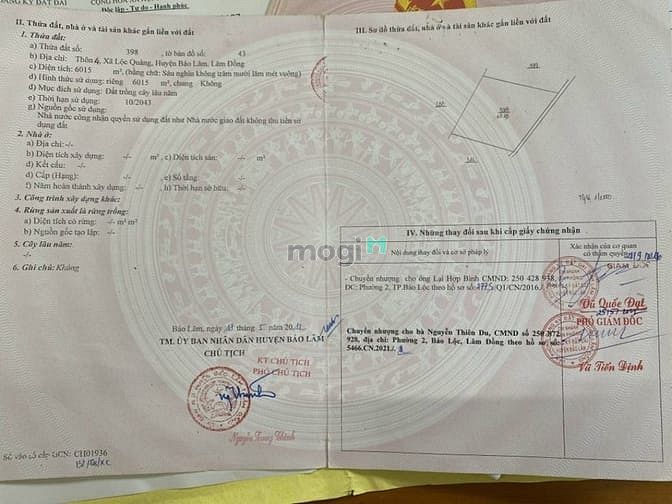 Độc lập - Tự do - Hạnh phúc
II. Thửa đất, nhà ở và tài sản khác gắn liền với đất
1. Thửa đất:
a) Thửa đất số: 398 , tờ bản đồ số: 43
b) Địa chỉ: Thôn 4, Xã Lộc Quảng, Huyện Bảo Lâm, Lâm Đồng
c) Diện tích: 6015 m², (bằng chữ: Sáu nghìn không trăm mười lăm mét vuông)
d) Hình thức sử dụng: riêng 6015 m², chung Không
đ) Mục đích sử dụng: Đất trồng cây lâu năm
e) Thời hạn sử dụng: 10/2043
g) Nguồn gốc sử dụng:
Nhà nước công nhận quyền sử dụng đất như Nhà nước giao đất không thu tiền sử
dụng đất
2. Nhà ở:
a) Địa chỉ:-/-
b) Diện tích xây dựng: -/- m² , c) Diện tích sàn: -/- m²
d) Kết cấu: -/-
đ) Cấp (Hạng): -/- , e) Số tầng: -/-
f) Năm hoàn thành xây dựng: -/- h) Thời hạn sở hữu: -/-
3. Công trình xây dựng khác:
4. Rừng sản xuất là rừng trồng:
a) Diện tích có rừng: -/- m² m²
b) Nguồn gốc tạo lập: -/-
5. Cây lâu năm:
-/-
6. Ghi chú: Không
Bảo Lâm, ngày
TM. ỦY BAN NHÂN DÂN HUYỆN BẢO LÂM
CHỦ TỊCH
KT CHỦ TỊCH
PHÓ CHỦ TỊCH
Nguyễn Trung Thành
Số vào sổ cấp GCN: CH01936
mogi
III. Sơ đồ thửa đất, nhà ở và tài sản khác gắn liền với đất
IV. Những thay đổi sau khi cấp giấy chứng nhận
Nội dung thay đổi và cơ sở pháp lý
Xác nhận của cơ quan
có thẩm quyền
- Chuyển nhượng cho ông Lại Hợp Bình CMND: 250 428 938,
DC: Phường 2, TP.Bảo Lộc theo hồ sơ số: /Q1/CN/2016./.
GIÁM ĐỐC
Vũ Quốc Đạt
Chuyển nhượng cho bà Nguyễn Thiên Du, CMND số 250 872
928, địa chỉ: Phường 2, Bảo Lộc, Lâm Đồng theo hồ sơ số:
5466.CN.2021./.
PHÓ GIÁM ĐỐC
Vũ Tiến Định